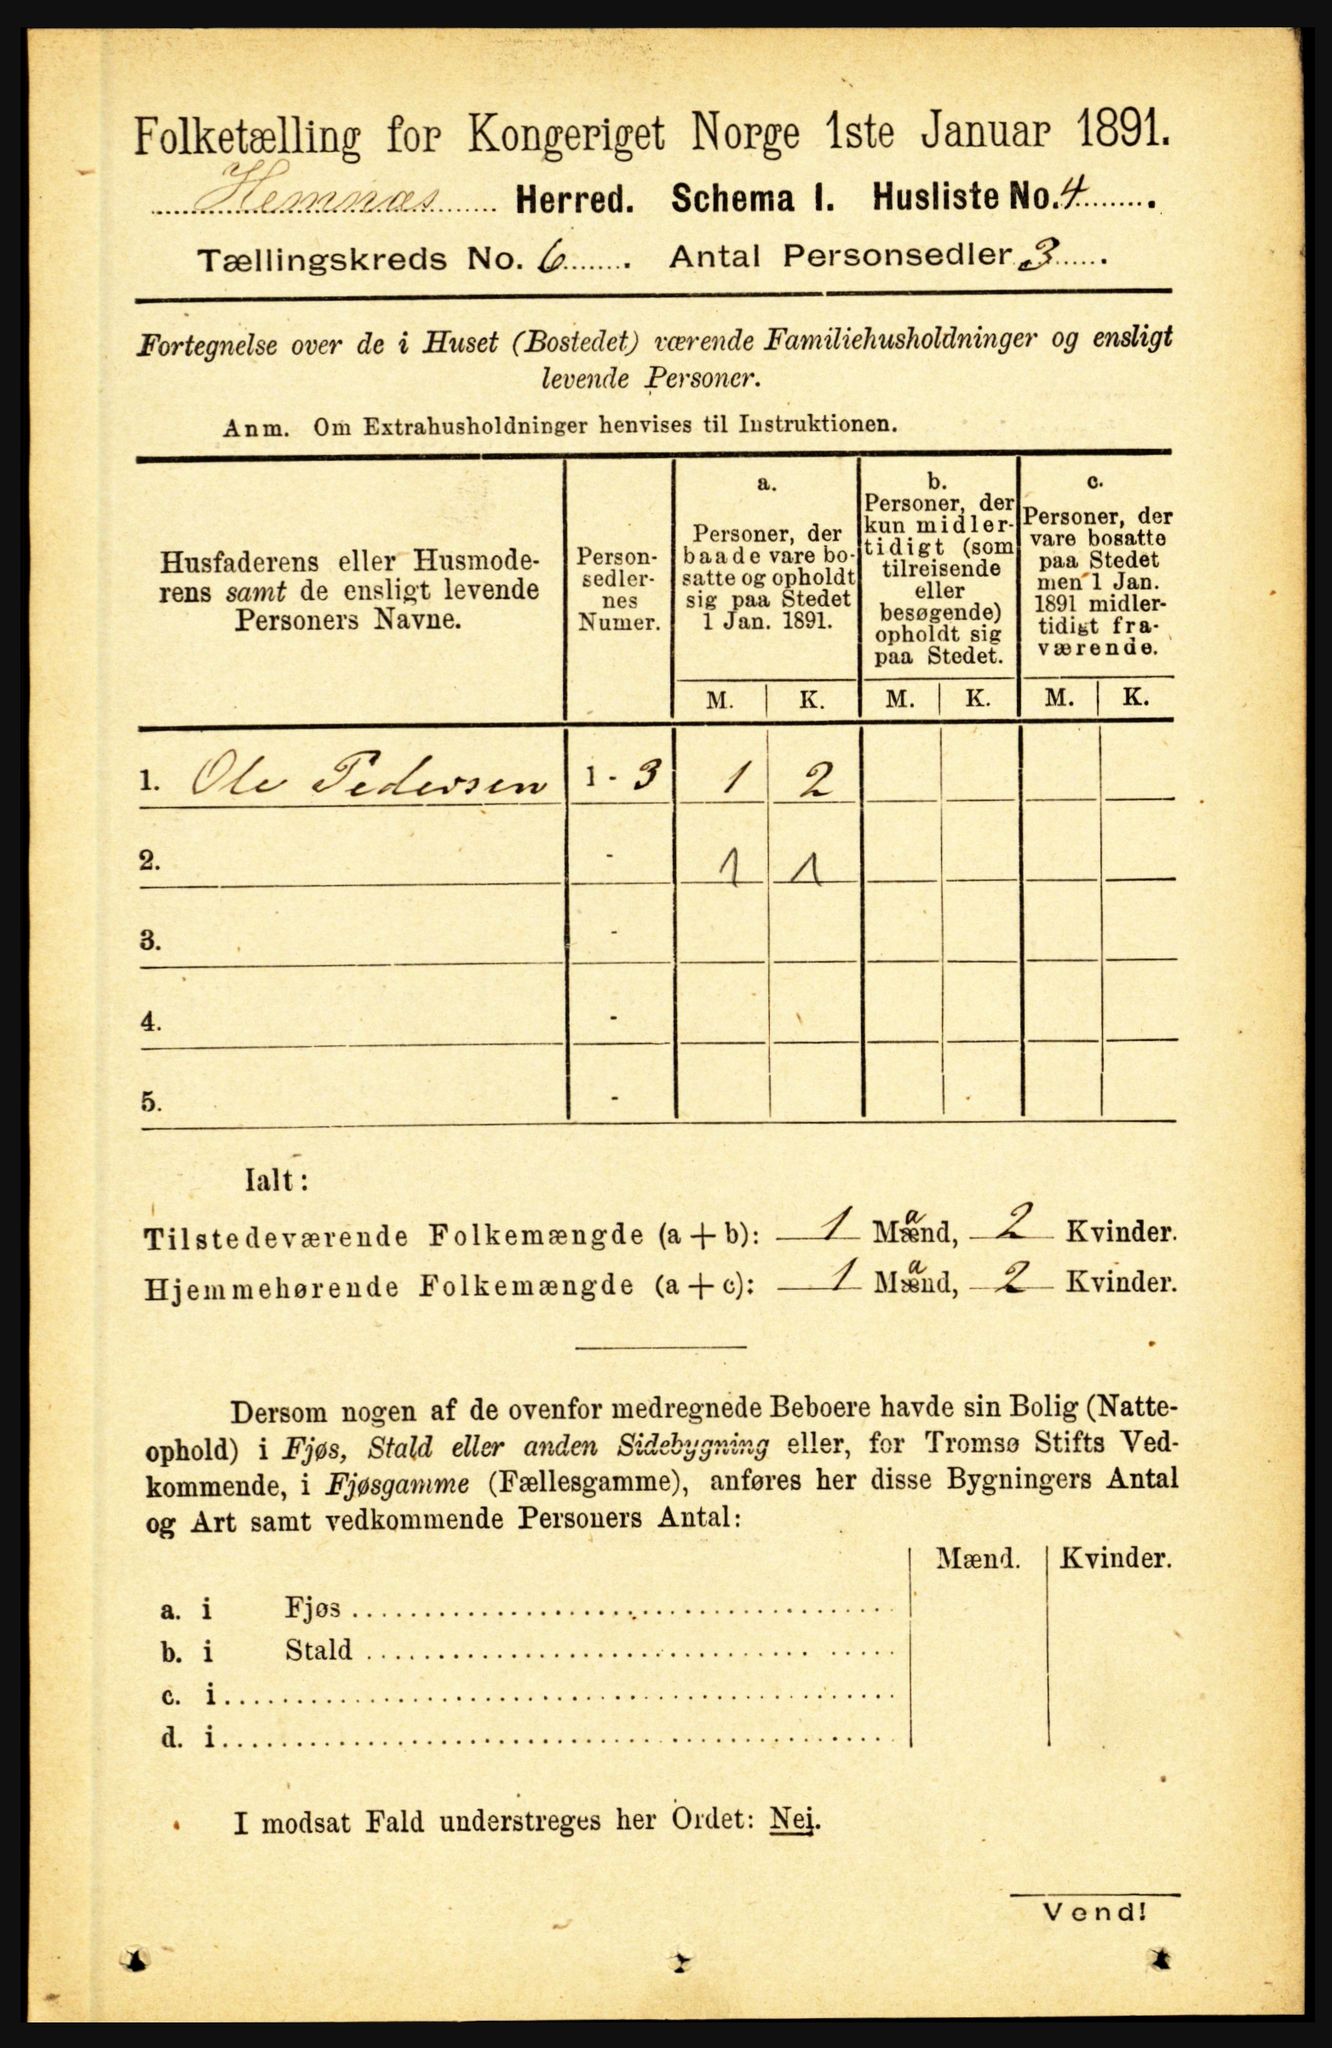 Folketælling for Kongeriget Norge 1ste Januar 1891.
Hemnæs Herred. Schema I. Husliste No. 4.
Tællingskreds No. 6. Antal Personsedler 3.
Fortegnelse over de i Huset (Bostedet) værende Familiehusholdninger og ensligt
levende Personer.
Anm. Om Extrahusholdninger henvises til Instruktionen.
Husfaderens eller Husmode-
rens samt de ensligt levende
Personers Navne.
Person-
sedler-
nes
Numer.
a.
Personer, der
baade vare bo-
satte og opholdt
sig paa Stedet
1 Jan. 1891.
b.
Personer, der
kun midler-
tidigt (som
tilreisende
eller
besøgende)
opholdt sig
paa Stedet.
c.
Personer, der
vare bosatte
paa Stedet
men 1 Jan.
1891 midler-
tidigt fra-
værende.
M. K. M. K. M. K.
1. Ole Pedersen 1 - 3 1 2
2. - 1 1
3. -
4. -
5. -
Ialt:
Tilstedeværende Folkemængde (a + b): 1 Mænd, 2 Kvinder.
Hjemmehørende Folkemængde (a + c): 1 Mænd, 2 Kvinder.
Dersom nogen af de ovenfor medregnede Beboere havde sin Bolig (Natte-
ophold) i Fjøs, Stald eller anden Sidebygning eller, for Tromsø Stifts Ved-
kommende, i Fjøsgamme (Fællesgamme), anføres her disse Bygningers Antal
og Art samt vedkommende Personers Antal:
Mænd. Kvinder.
a. i Fjøs
b. i Stald
c. i
d. i
I modsat Fald understreges her Ordet: Nei.
Vend!